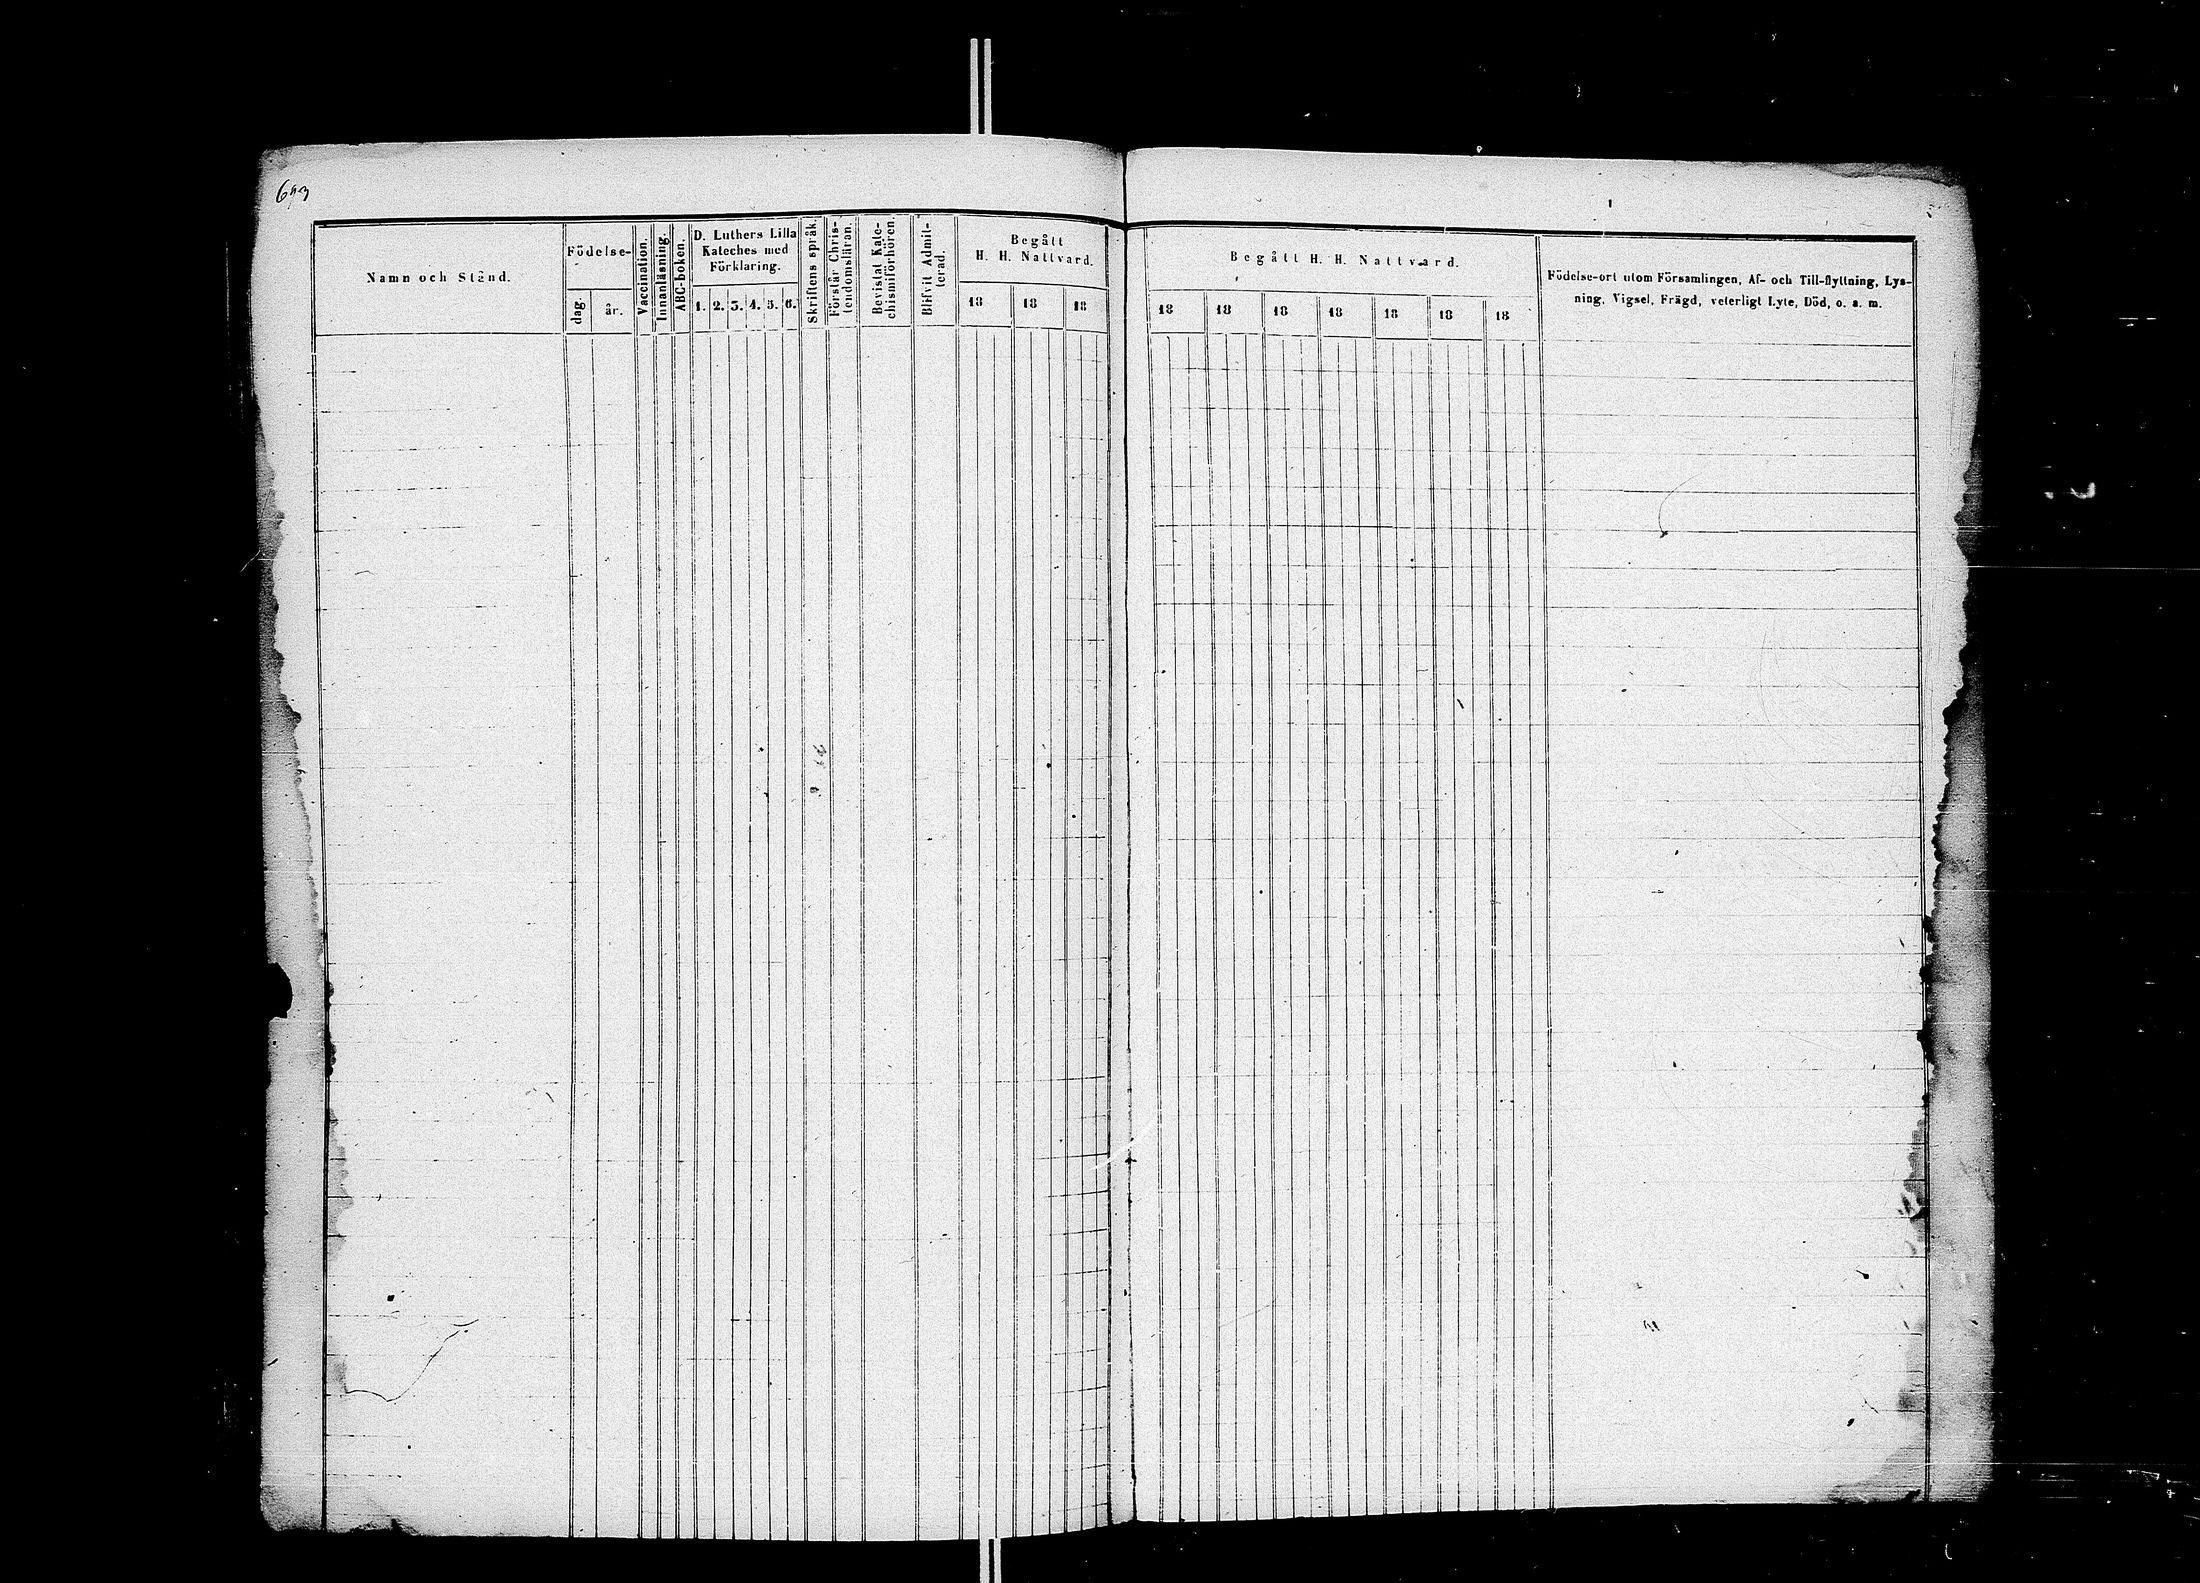 Namn och Stånd.
Födelse-
dag.
år.
Vaccination.
Innanläsning.
ABC-boken.
D. Luthers Lilla
Kateches med
Förklaring.
1. 2. 3. 4. 5. 6.
Skriftens språk.
Förstår Chris-
tendomsläran.
Bevistat Kate-
chismiförhören.
Blifvit Admit-
terad.
Begått
H. H. Nattvard.
18 18 18
Begått H. H. Nattvard.
18 18 18 18 18 18 18
Födelse-ort utom Församlingen, Af- och Till-flyttning, Lys-
ning, Vigsel, Frägd, veterligt Lyte, Död, o. s. m.